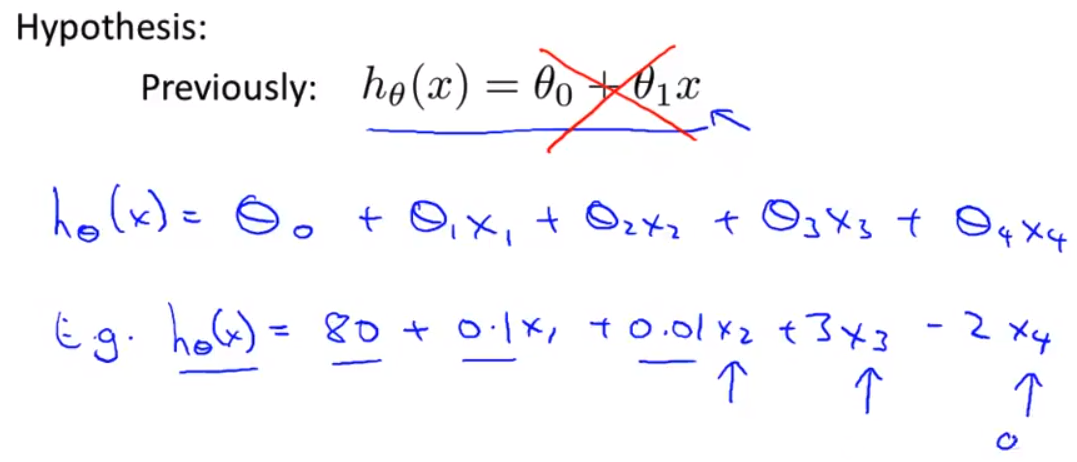 Hypothesis:
Previously: hθ(x) = θ₀ + θ₁x
hθ(x) = θ₀ + θ₁x₁ + θ₂x₂ + θ₃x₃ + θ₄x₄
E.g. hθ(x) = 80 + 0.1x₁ + 0.01x₂ + 3x₃ - 2x₄
↑ ↑ ↑
0